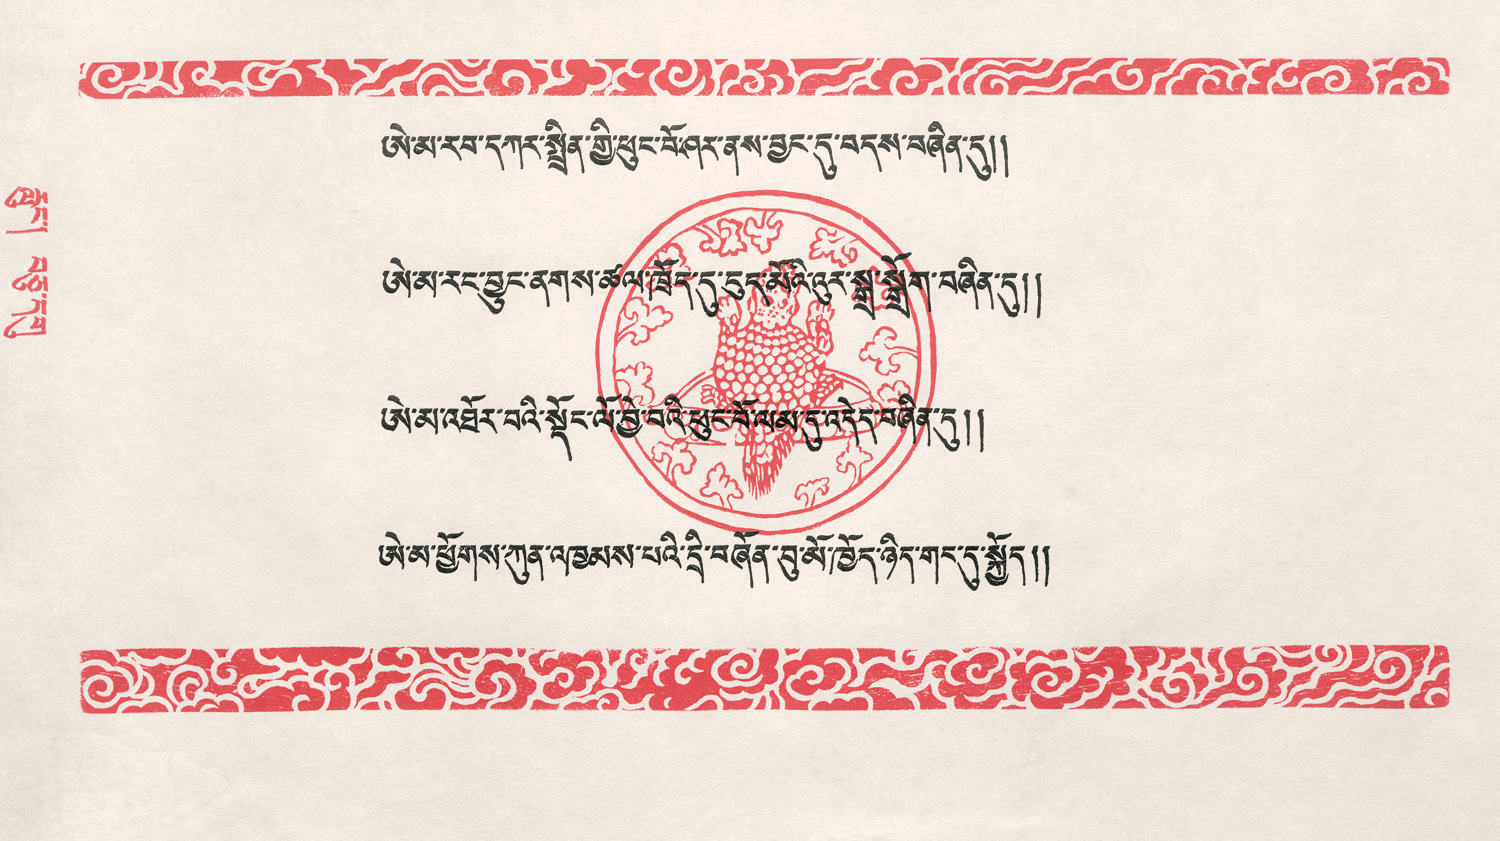 ཨེ་མ་རབ་དཀར་སྤྲིན་གྱི་ཕུང་པོ་ཤར་ནས་བྱང་དུ་བདས་བཞིན་དུ།།
ཨེ་མ་རང་བྱུང་ནགས་ཚལ་ཁྲོད་དུ་ངུད་མོའི་འུར་སྒྲ་སྒྲོག་བཞིན་དུ།།
ཨེ་མ་འཐོར་བའི་སྡོང་ལོ་བྱེ་བའི་ཕུང་པོ་ལམ་དུ་འདེད་བཞིན་དུ།།
ཨེ་མ་ཕྱོགས་ཀུན་འཁྱམས་པའི་དྲི་བཞོན་བུ་མོ་ཁྱོད་ཉིད་གང་དུ་སྐྱོད།།